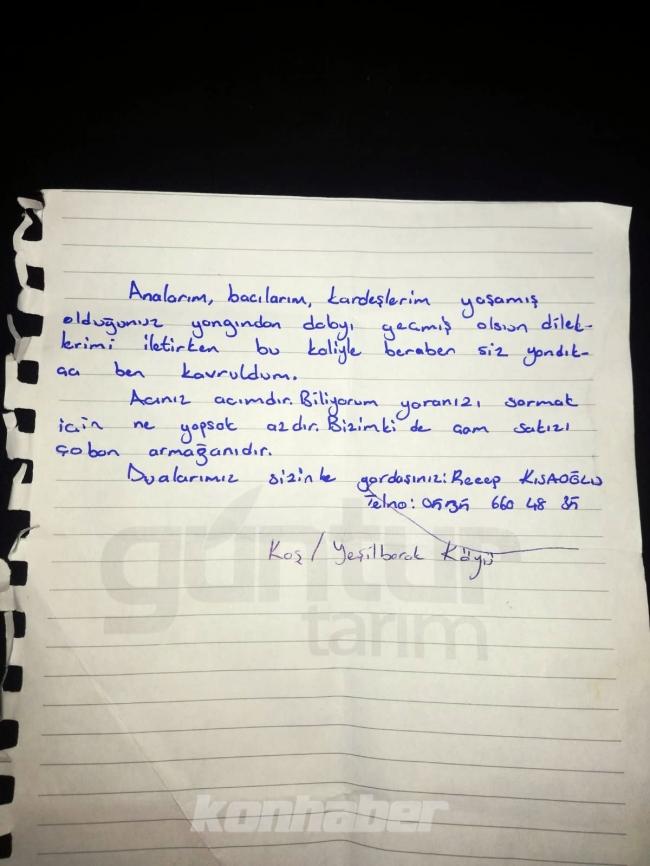 Analarım, bacılarım, kardeşlerim yaşamış
olduğunuz yangından dolayı geçmiş olsun dilek-
lerimi iletirken bu koliyle beraber siz yandık-
ca ben kavruldum.
Acınız acımdır. Biliyorum yaranızı sarmak
için ne yapsak azdır. Bizimki de çam sakızı
çoban armağanıdır.
Dualarımız sizinle gardaşınız: Recep KISAOĞLU
Telno: 0535 660 48 35
Kaş / Yeşilbarak Köyü
güntur
tarım
konhaber